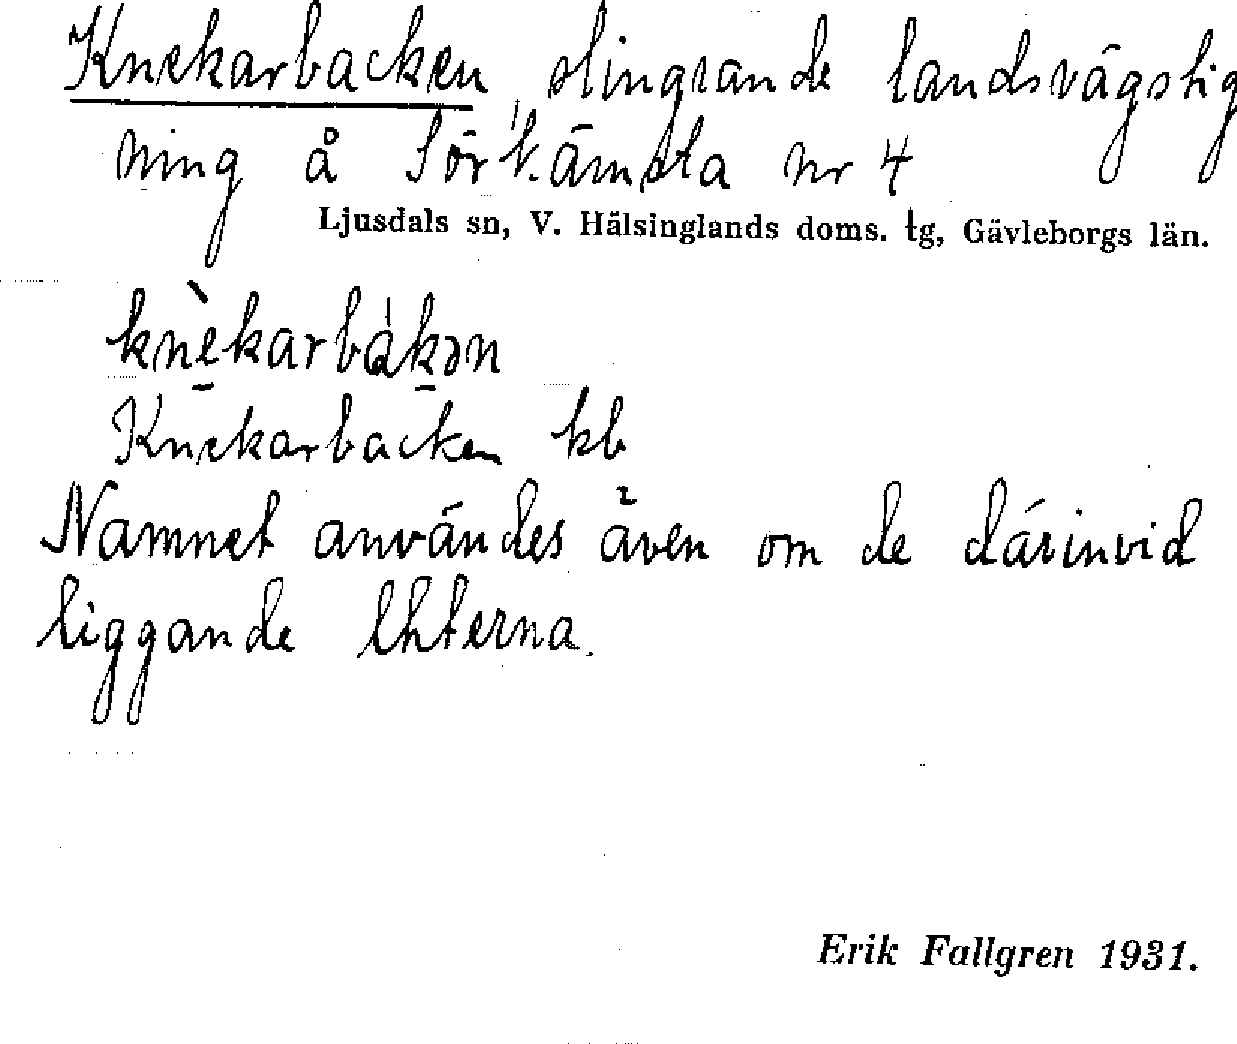 Knekarbacken, slingrande landsvägstig
ning å Sör Kämsta nr 4
Ljusdals sn, V. Hälsinglands doms. tg, Gävleborgs län.
knèkarbàkən
Knekarbacken kb
Namnet användes även om de därinvid
liggande
Erik Fallgren 1931.